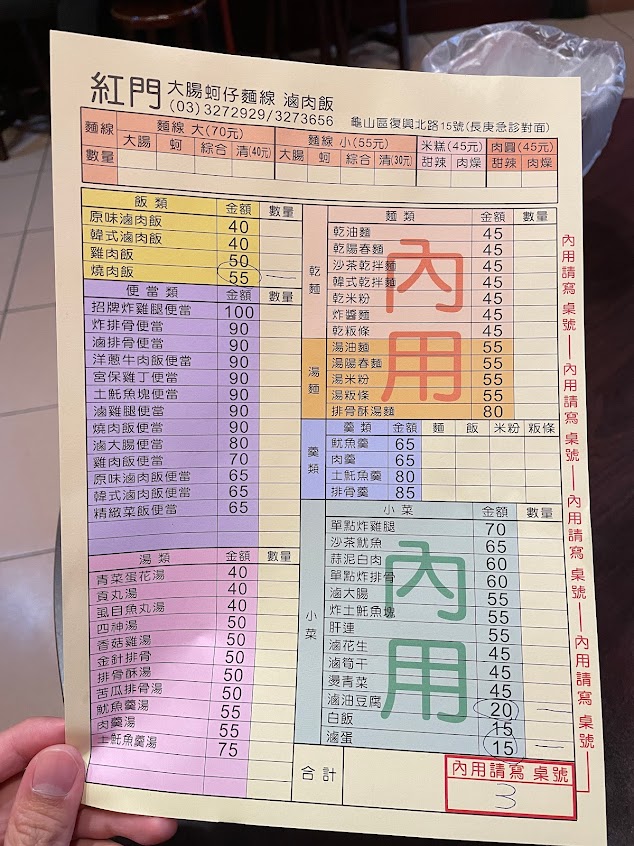 紅門 大腸蚵仔麵線 滷肉飯
(03)3272929/3273656 龜山區復興北路15號(長庚急診對面)
麵線 麵線 大(70元) 麵線 小(55元) 米糕(45元) 肉圓(45元)
數量 大腸 蚵 綜合 清(40元) 大腸 蚵 綜合 清(30元) 甜辣 肉燥 甜辣 肉燥
飯 類 金額 數量
原味滷肉飯 40
韓式滷肉飯 40
雞肉飯 50
燒肉飯 55
便當類 金額 數量
招牌炸雞腿便當 100
炸排骨便當 90
滷排骨便當 90
洋蔥牛肉飯便當 90
宮保雞丁便當 90
土魠魚塊便當 90
滷雞腿便當 90
燒肉飯便當 90
滷大腸便當 80
雞肉飯便當 70
原味滷肉飯便當 65
韓式滷肉飯便當 65
精緻菜飯便當 65
湯 類 金額 數量
青菜蛋花湯 40
貢丸湯 40
虱目魚丸湯 40
四神湯 50
香菇雞湯 50
金針排骨 50
排骨酥湯 50
苦瓜排骨湯 50
魷魚羹湯 55
肉羹湯 55
土魠魚羹湯 75
麵 類 金額 數量
乾麵
乾油麵 45
乾陽春麵 45
沙茶乾拌麵 45
韓式乾拌麵 45
乾米粉 45
炸醬麵 45
乾粄條 45
湯麵
湯油麵 55
湯陽春麵 55
湯米粉 55
湯粄條 55
排骨酥湯麵 80
內用
羹類
羹 類 金額 麵 飯 米粉 粄條
魷魚羹 65
肉羹 65
土魠魚羹 80
排骨羹 85
小菜
小 菜 金額 數量
單點炸雞腿 70
沙茶魷魚 65
蒜泥白肉 60
單點炸排骨 60
滷大腸 55
炸土魠魚塊 55
肝連 55
滷花生 45
滷筍干 45
燙青菜 45
滷油豆腐 20
白飯 15
滷蛋 15
內用
合計
內用請寫 桌號
3
內用請寫 桌號
內用請寫 桌號
內用請寫 桌號
內用請寫 桌號